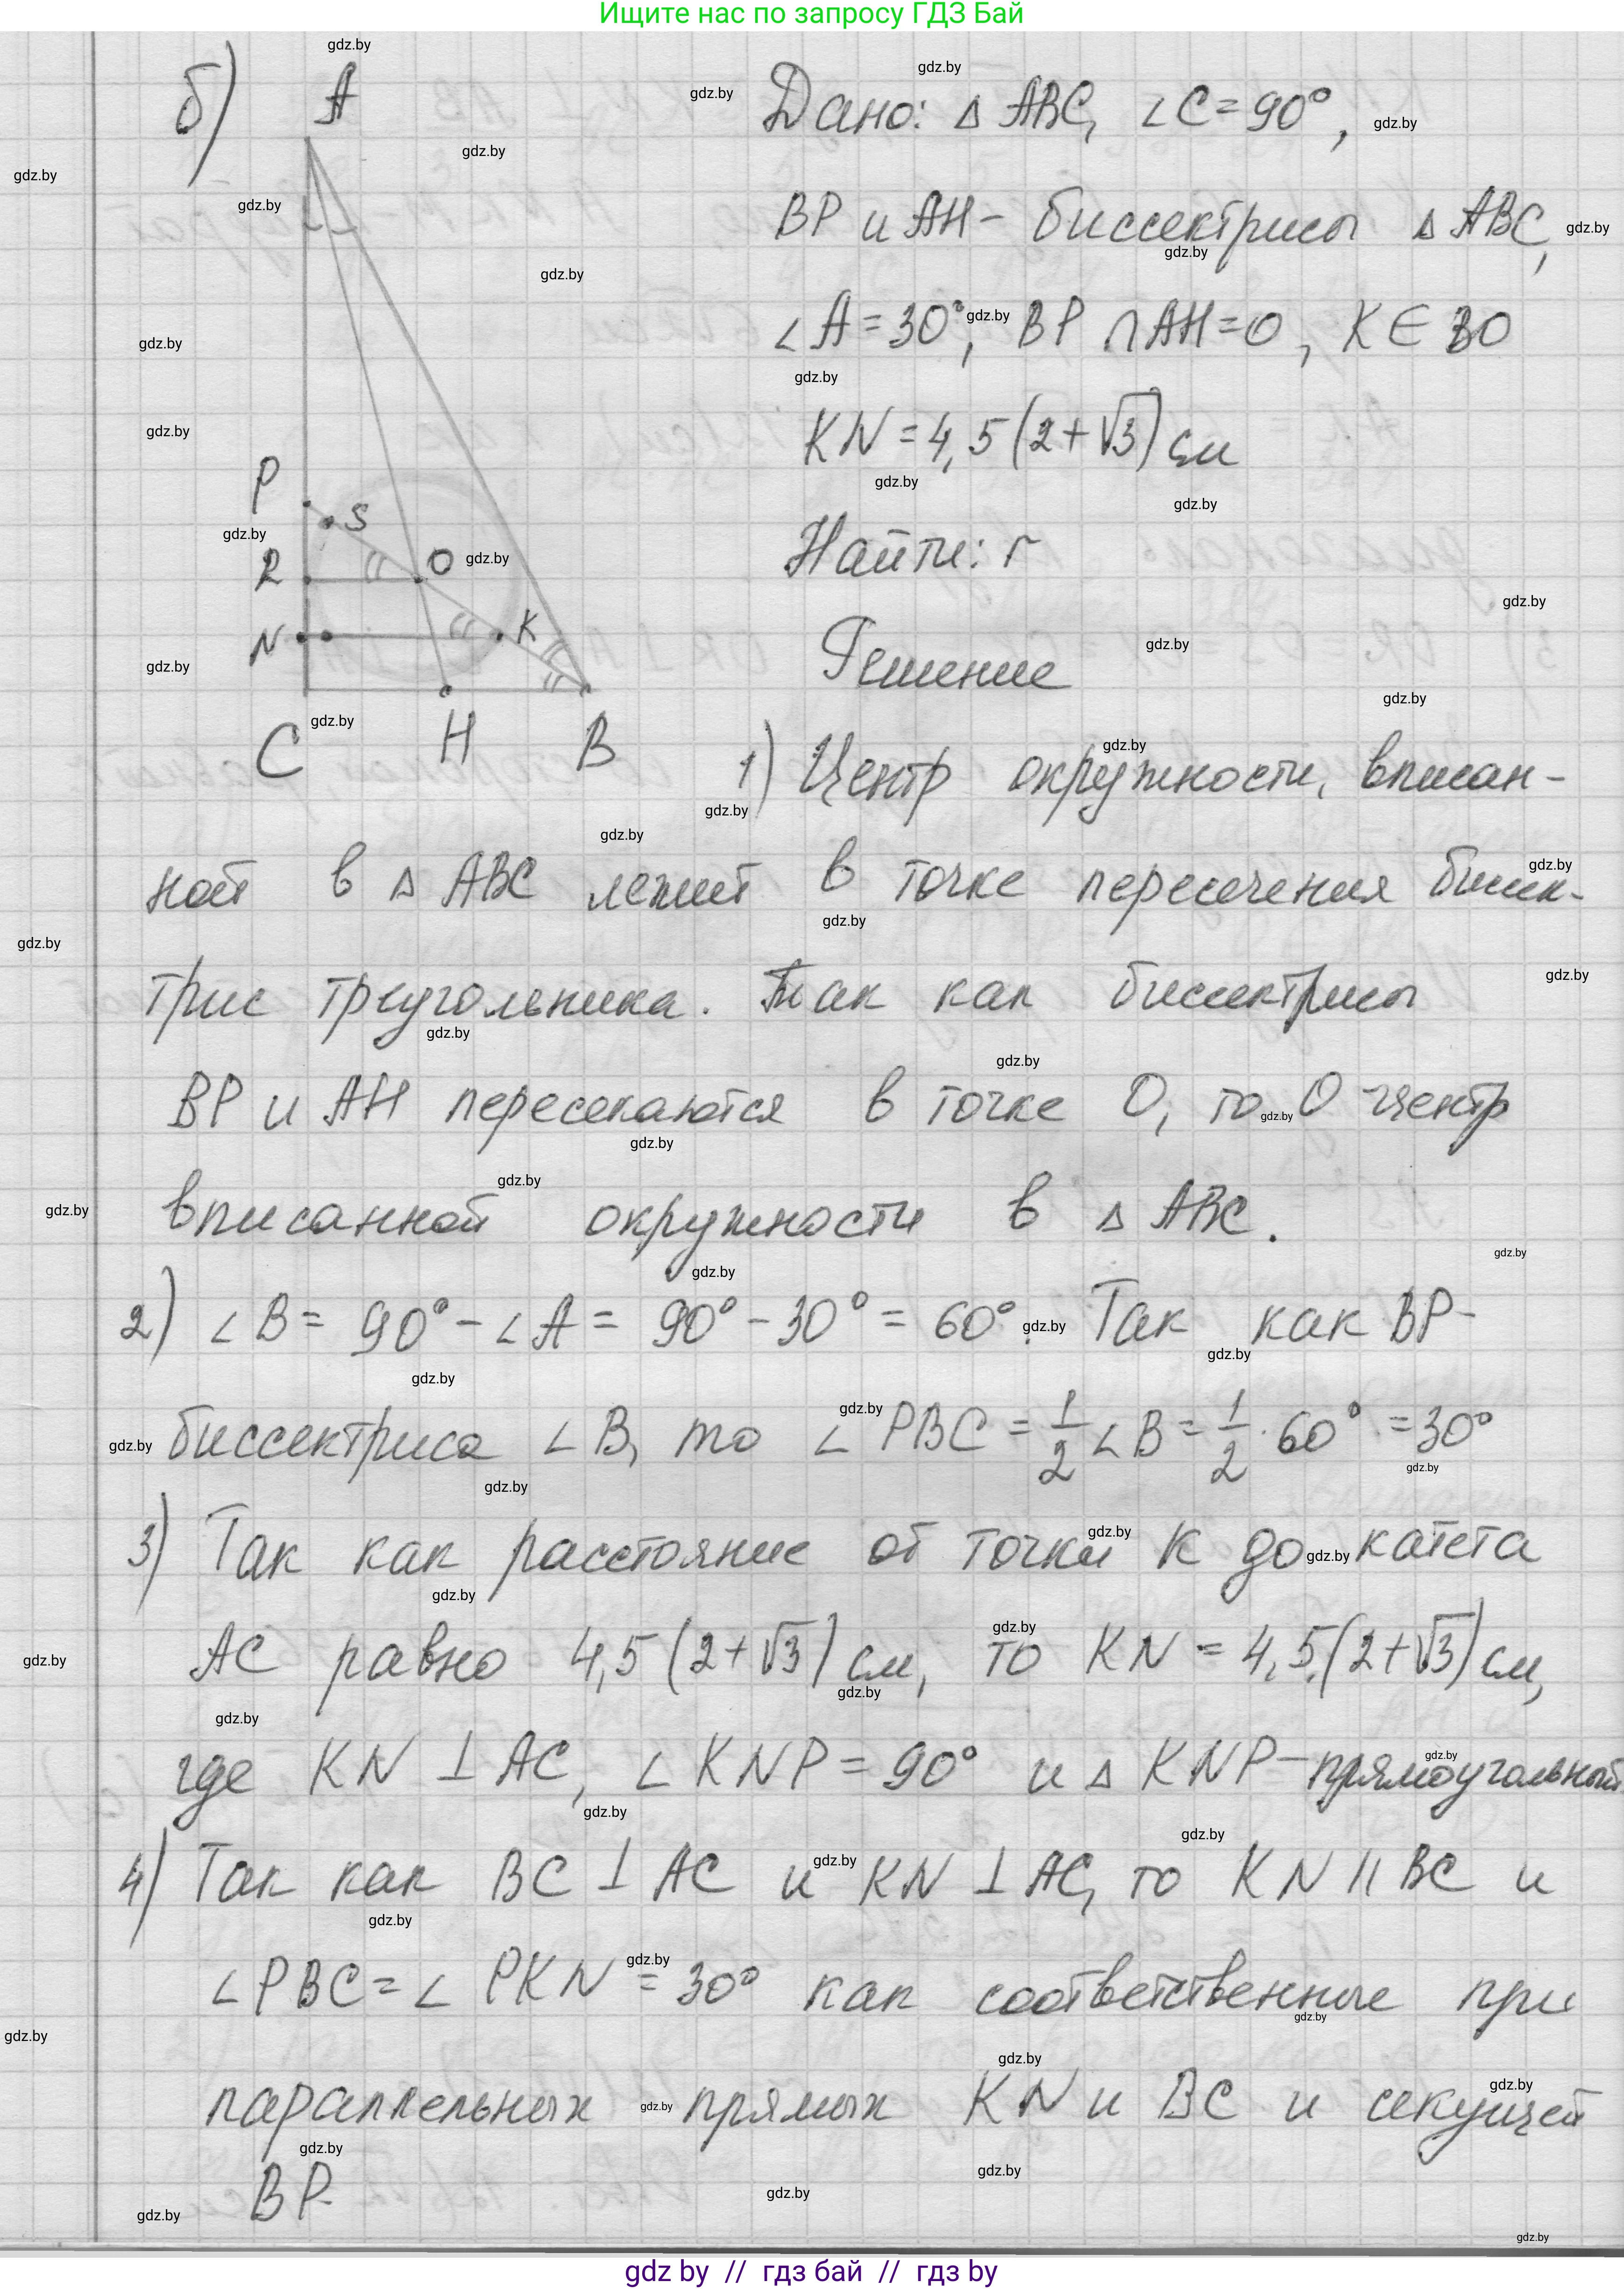 Ищите нас по запросу ГДЗ Бай
б)
A
P
S
R
O
N
K
C
H
B
Дано: △ ABC, ∠C=90°,
BP и AH - биссектрисы △ ABC,
∠A=30°, BP ∩ AH=O, K ∈ BO
KN=4,5(2+√3) см
Найти: r
Решение
1) Центр окружности, вписан-
ной в △ ABC лежит в точке пересечения биссек-
трис треугольника. Так как биссектрисы
BP и AH пересекаются в точке O, то O - центр
вписанной окружности в △ ABC.
2) ∠B = 90° - ∠A = 90° - 30° = 60°. Так как BP -
биссектриса ∠B, то ∠PBC = 1/2 ∠B = 1/2 · 60° = 30°
3) Так как расстояние от точки K до катета
AC равно 4,5(2+√3) см, то KN = 4,5(2+√3) см,
где KN ⊥ AC, ∠KNP = 90° и △ KNP - прямоугольный
4) Так как BC ⊥ AC и KN ⊥ AC, то KN || BC и
∠PBC = ∠PKN = 30° как соответственные при
параллельных прямых KN и BC и секущей
BP.
gdz by // гдз бай // гдз by